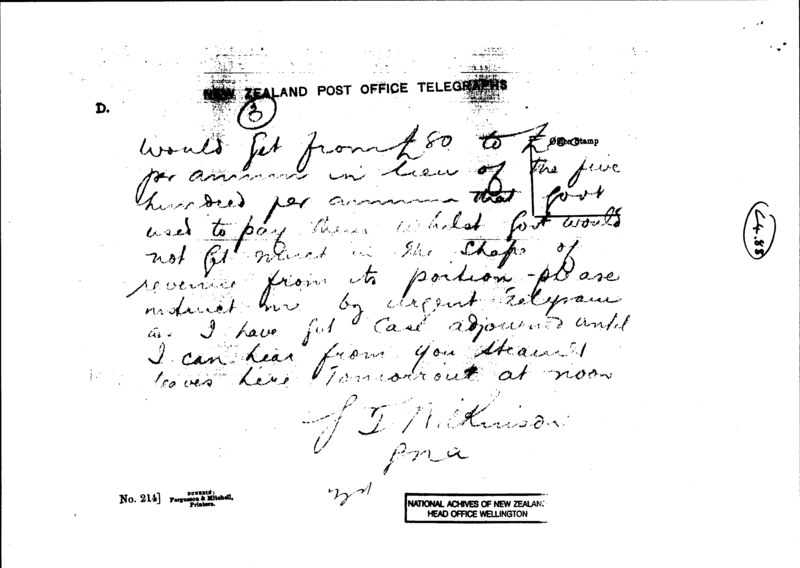 NEW ZEALAND POST OFFICE TELEGRAPHS
D.
3
Office Stamp
would get from £80 to £
per annum in lieu of the five
hundred per annum that Govt
used to pay them whilst Govt would
not get much in the shape of
revenue from its portion - please
instruct me by urgent Telegram
as I have got Case adjourned until
I can hear from you steamer
leaves here Tomorrow at noon
G T Wilkinson
No. 214]
DUNEDIN:
Fergusson & Mitchell,
Printers.
NATIONAL ACHIVES OF NEW ZEALAN
HEAD OFFICE WELLINGTON